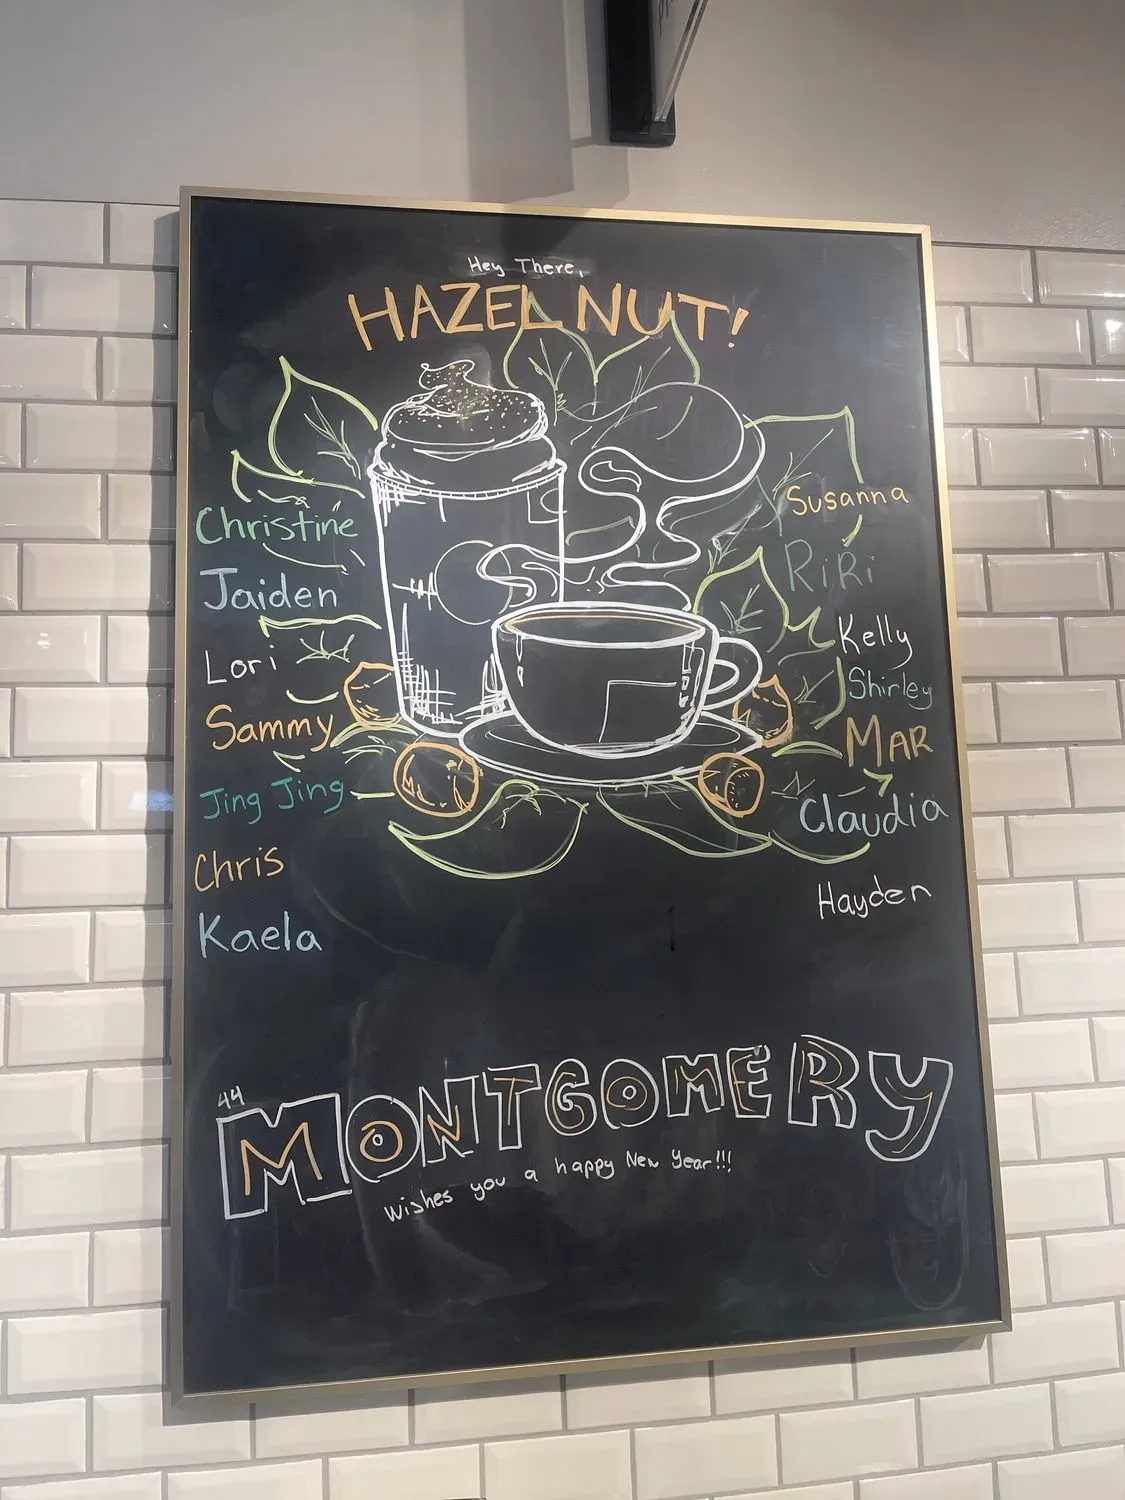 Hey There,
HAZELNUT!
Christine
Jaiden
Lori
Sammy
Jing Jing
Chris
Kaela
Susanna
RiRi
Kelly
Shirley
MAR
Claudia
Hayden
44
MONTGOMERY
wishes you a happy New Year!!!